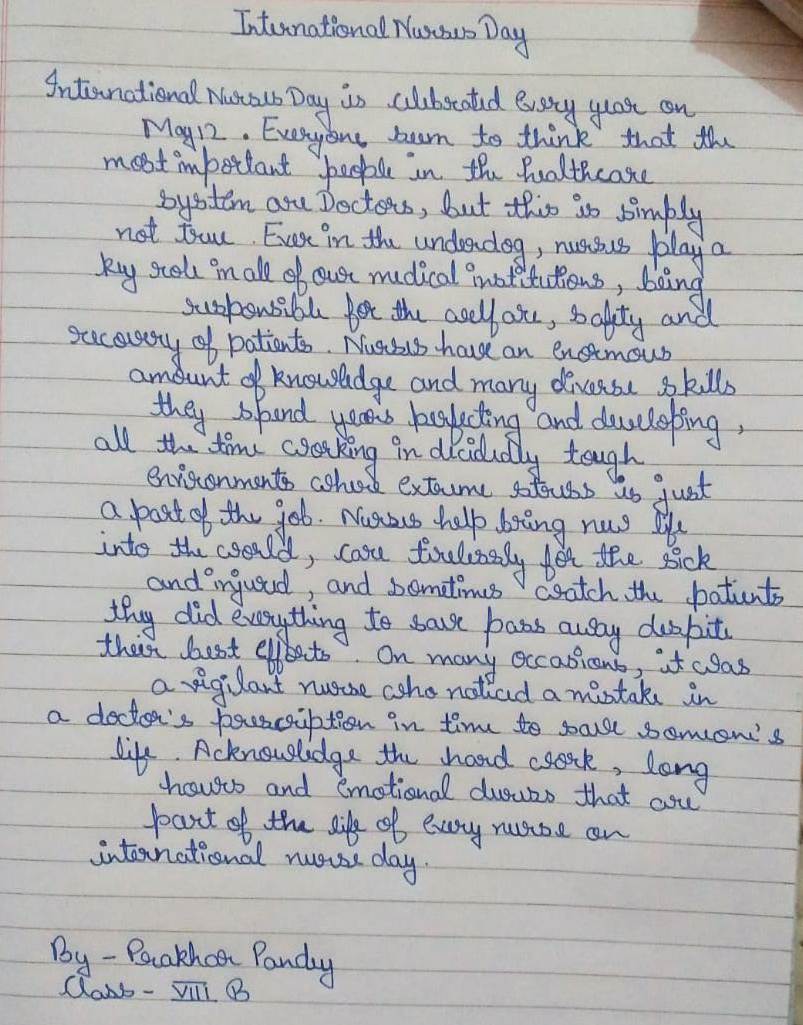 International Nurses Day
International Nurses Day is celebrated Every year on
May 12 . Everyone seem to think that the
most important people in the healthcare
system are Doctors, but this is simply
not true . Ever in the underdog, nurses play a
key role in all of our medical institutions, being
responsible for the welfare, safety and
recovery of patients . Nurses have an enormous
amount of knowledge and many diverse skills
they spend years perfecting and developing,
all the time working in decidedly tough
environments where extreme stress is just
a part of the job. Nurses help bring new life
into the world, care tirelessly for the sick
and injured, and sometimes watch the patients
they did everything to save pass away despite
their best efforts . On many occasions, it was
a vigilant nurse who noticed a mistake in
a doctor's prescription in time to save someone's
life . Acknowledge the hard work, long
hours and emotional that are
part of the life of Every nurse on
international nurse day.
By - Prakhar Pandey
Class - VIII B